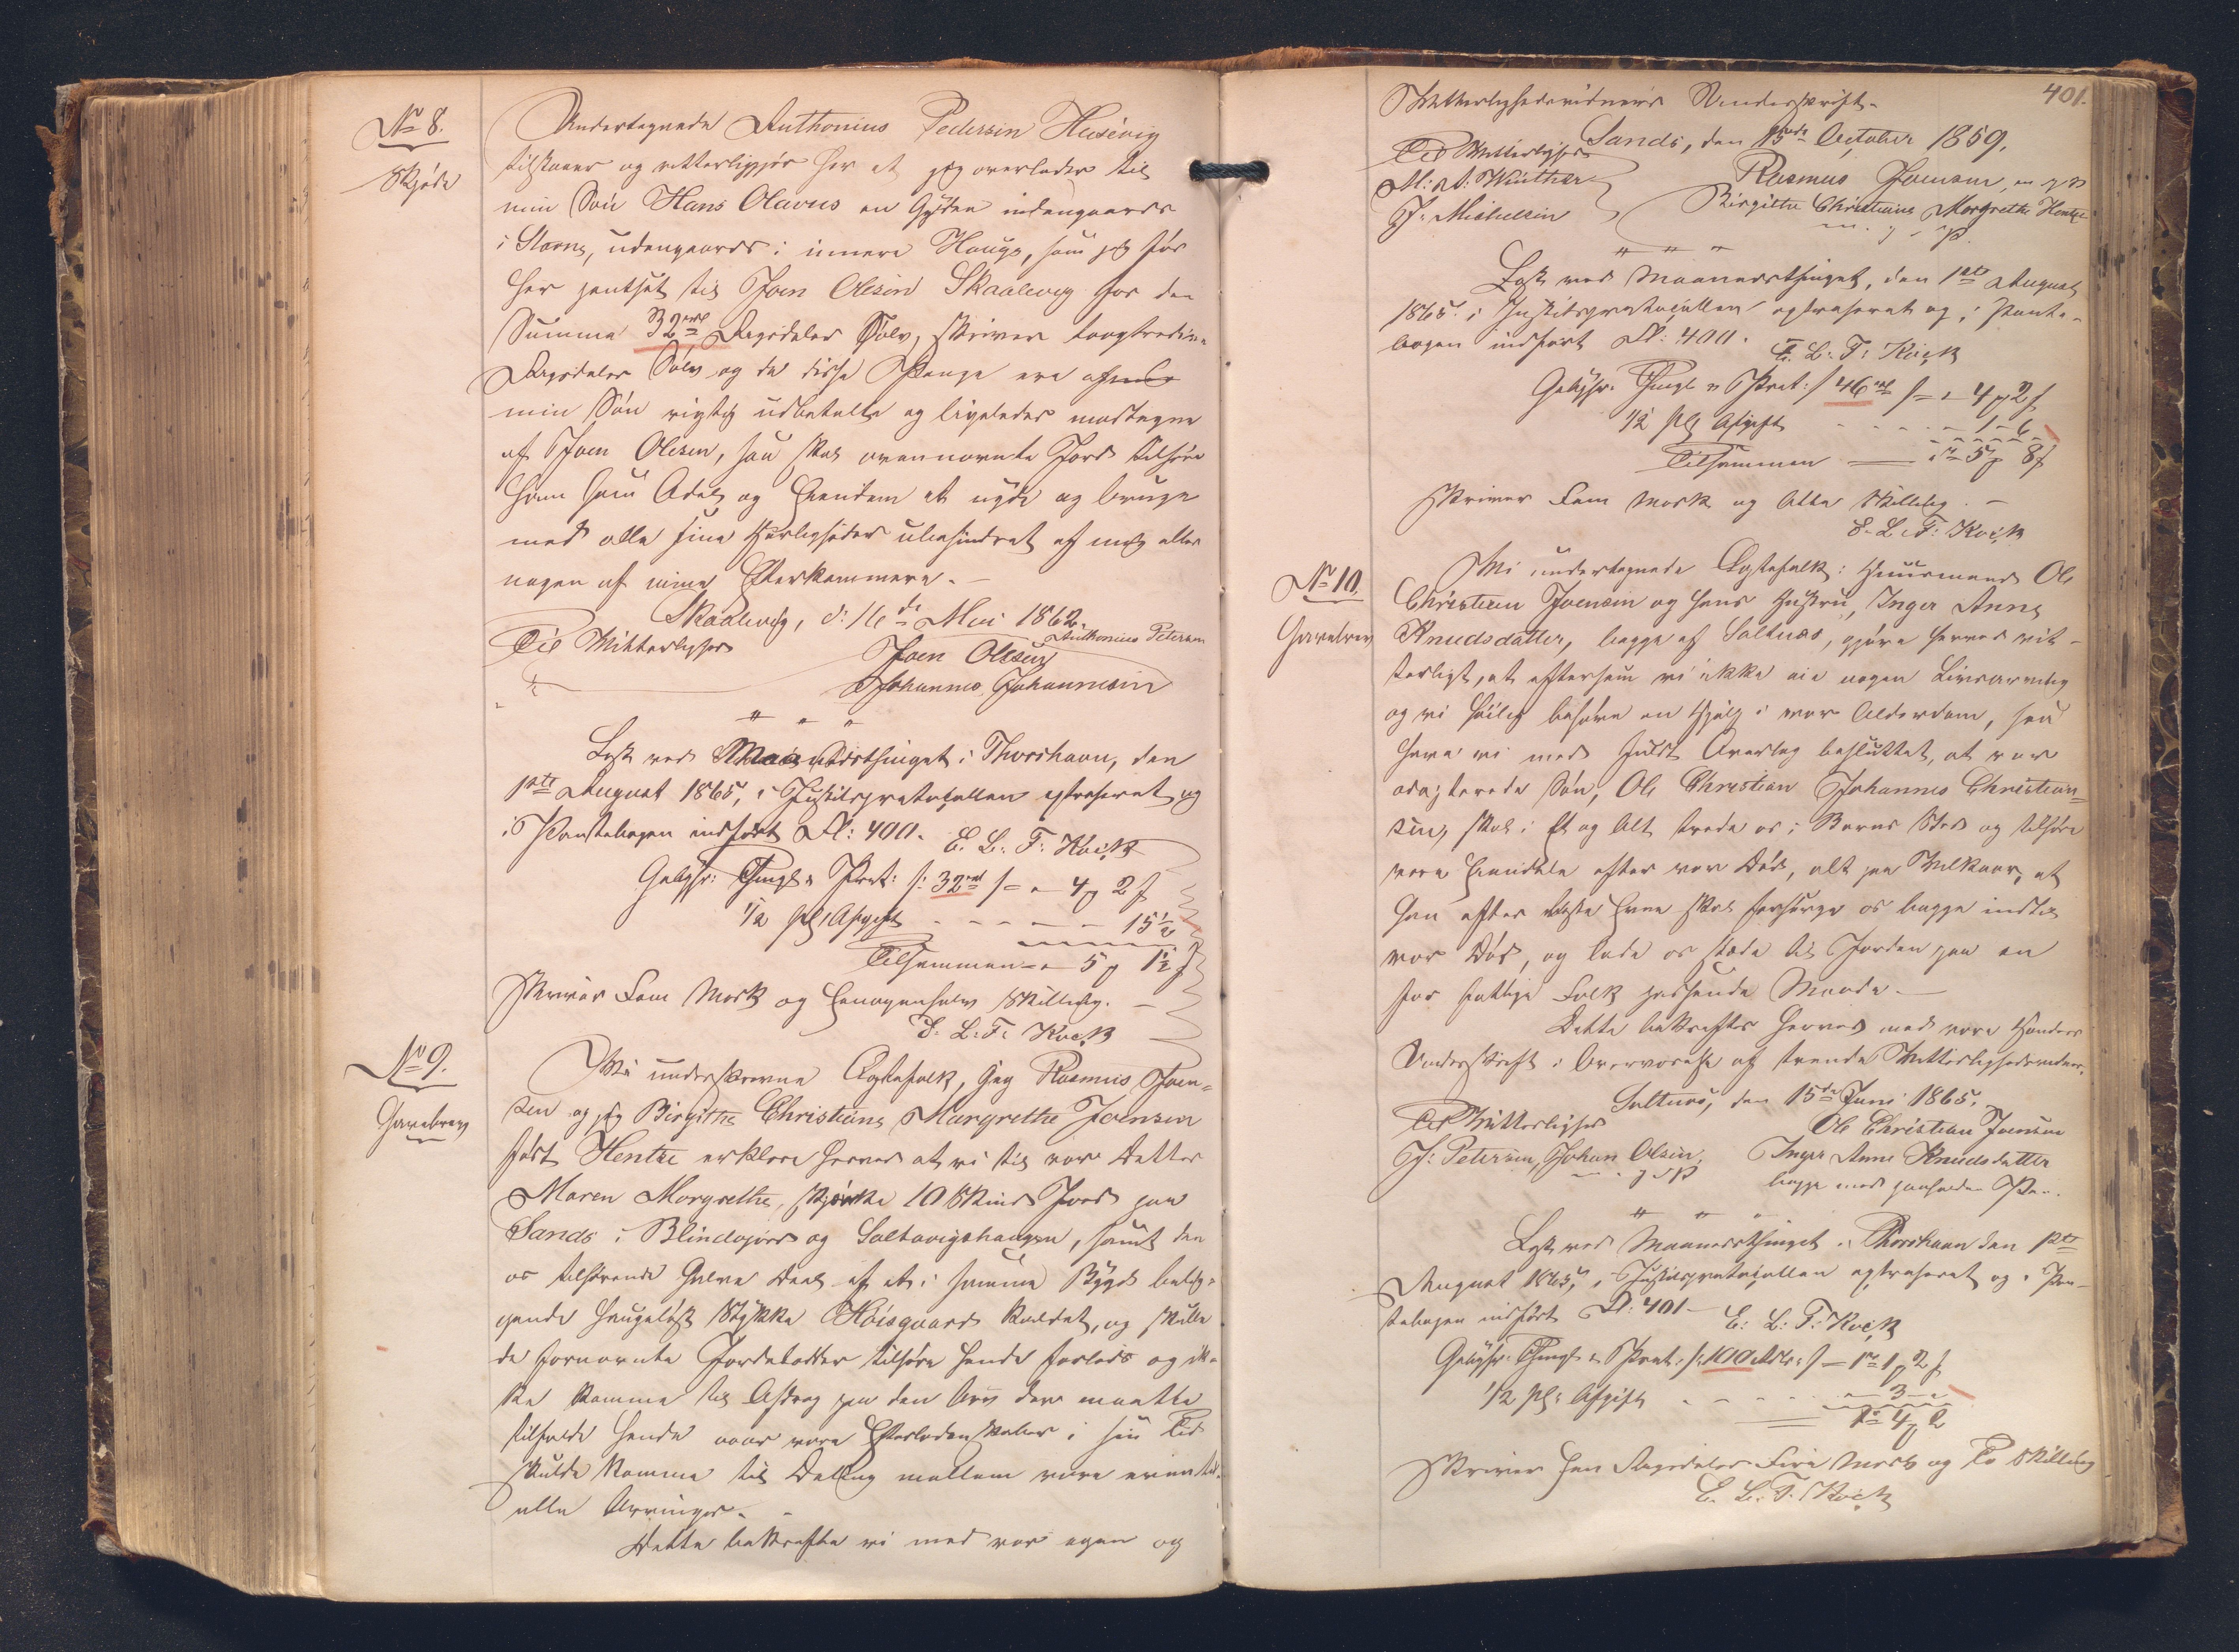 No 8.
Skjøde
Undertegnede Anthonius Pedersen Husevig
tilstaaer og vitterliggjør her at jeg overlader til
min Søn Hans Olavus en Gylden indengaards
i Storne, udengaards i innere Hauge, som jeg før
har pantsat til Joen Olesen Skaalevig for den
Summa 32 rd Rigsdaler Sølv, skriver toogtredive
Rigsdaler Sølv og da disse Penge ere af
min Søn rigtig udbetalte og ligeledes modtagne
af Joen Olesen, saa skal ovennævnte Jord tilhøre
ham som Odel og Eiendom at nyde og bruge
med alle sine Herligheder ubehindret af mig eller
nogen af mine Efterkommere. —
Skaalevig, d: 16de Mai 1862.
Anthonius Petersen
Til Vitterlighed
Joen Olesen
Johannes Johannesen
" " "
Læst ved Maanedsthinget i Thorshavn, den
1ste August 1865, i Justitsprotocollen extraheret og
i Pantebogen indført Fl: 400. E. L. F. Kock
Gebyhr: Thingl. & Prot: /: 32 rd /: = " 4 p 2 s
1/2 pCt Afgift - - - - 15 1/2
Tilsammen = " 5 p 1 1/2 s
skriver Fem Mark og Enogenhalv Skilling. —
E. L. F. Kock
No 9.
Gavebrev
Vi underskrevne Ægtefolk, Jeg Rasmus Joen-
sen og jeg Birgithe Christiane Margrethe Joensen
født Hentze erklære herved at vi til vor Datter
Maren Margrethe, skjænke 10 Skind Jord paa
Sands i Blindagjord og Saltvigshaugen, samt den
os tilhørende halve Deel af et i samme Bygd belig-
gende haugeløst Stykke Høisgaard kaldet, og skulle
de fornævnte Jordelodder tilhøre hende forlods og ik-
ke komme til Afdrag paa den Arv der maatte
tilfalde hende naar vore Efterladenskaber i sin Tid
skulde komme til Deling mellem vore eventu-
elle Arvinger. -
Dette bekræfte vi med vor egen og
401.
Vitterlighedsvidners Underskrift.
Sands, den 15de October 1859.
Til Vitterlighed
M: A: Winther
J. Michelsen
Rasmus Joensen, m. p. P
Birgitte Christiane Margrethe Hentze
m. j. P.
" " "
Læst ved Maanedsthinget, den 1ste August
1865. i Justitsprotocollen extraheret og i Pante-
bogen indført Fl: 400.
E. L. F. Kock
Gebyhr. Thingl & Prot: /: 46 rd /: = " 4 p 2 s
1/2 pCt Afgift - - - - 1 - 6
Tilsammen — " 5 p 8 s
skriver Fem Mark og Otte Skilling. —
E. L. F. Kock
No 10.
Gavebrev
Vi undertegnede Ægtefolk: Huusmand Ole
Christian Joensen og hans Hustru, Inger Anne
Knudsdatter, begge af Saltnæs, gjøre herved vit-
terligt, at eftersom vi ikke eie nogen Livsarving
og vi høilig behøve en Hjælp i vor Alderdom, saa
have vi med fuldt Overlæg besluttet, at vor
adopterede Søn, Ole Christian Johannes Christian-
sen, skal i Et og Alt træde os i Barns Sted og tilhøre
vore Eiendele efter vor Død, alt paa Vilkaar, at
han efter bedste Evne skal forsørge os begge indtil
vor Død, og lade os stede til Jorden paa en
for fattige Folk passende Maade. —
Dette bekræftes herved med vore Hænders
Underskrift i Overværelse af tvende Vitterlighedsvidner.
Saltnæs, den 15de Juni 1865.
Til Vitterlighed
J: Petersen, Johan Olsen
m. j. P
Ole Christian Joensen
Inger Anne Knudsdatter
begge med paaholden Pen.
" " "
Læst ved Maanedsthinget i Thorshavn den 1ste
August 1865, i Justitsprotocollen extraheret og i Pan-
tebogen indført Fl: 401 —
E: L: F: Kock
Gebyhr. Thingl & Prot: /: 100 Rdlr: /: = 1 rd 1 p 2 s
1/2 pCt Afgift - - - - " 3 - "
1 rd 4 p 2
skriver Een Rigsdaler Fire Mark og To Skilling
E. L. F. Kock